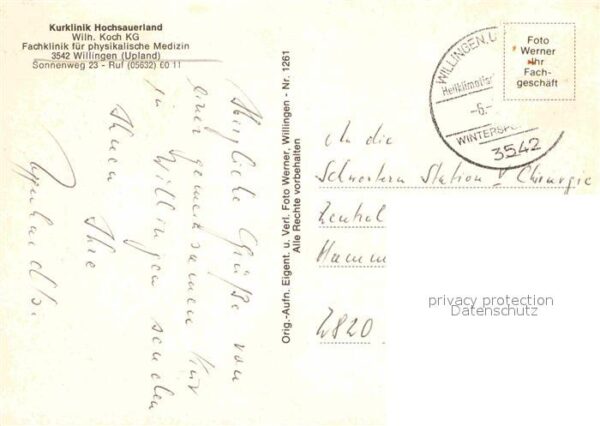 Kurklinik Hochsauerland
Wilh. Koch KG
Fachklinik für physikalische Medizin
3542 Willingen (Upland)
Sonnenweg 23 - Ruf (05632) 60 11
Herzliche Grüße von
einer gemeinsamen Kur
in Willingen senden
Ihnen
Ihre
Orig.-Aufn. Eigent. u. Verl. Foto Werner, Willingen - Nr. 1261
Alle Rechte vorbehalten
WILLINGEN, U
Heilklimatis
-6.-
WINTERSP
3542
Foto
Werner
Ihr
Fach-
geschäft
An die
Schwestern Station V Chirurgie
Zentral
Hamm
privacy protection
Datenschutz